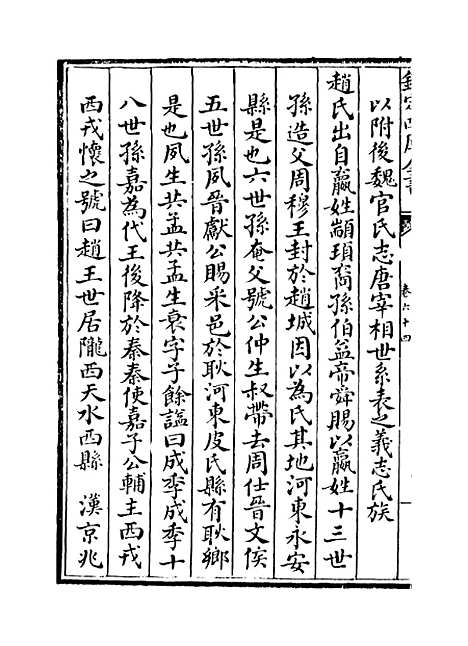 欽定四庫全書
卷六十四
以附後魏官氏志唐宰相世系表之義志氏族
趙氏出自嬴姓顓頊裔孫伯益帝舜賜以嬴姓十三世
孫造父周穆王封於趙城因以為氏其地河東永安
縣是也六世孫奄父號公仲生叔帶去周仕晉文侯
五世孫夙晉獻公賜采邑於耿河東皮氏縣有耿鄉
是也夙生共孟共孟生衰字子餘諡曰成季成季十
八世孫嘉為代王後降於秦秦使嘉子公輔主西戎
西戎懷之號曰趙王世居隴西天水西縣　漢京兆